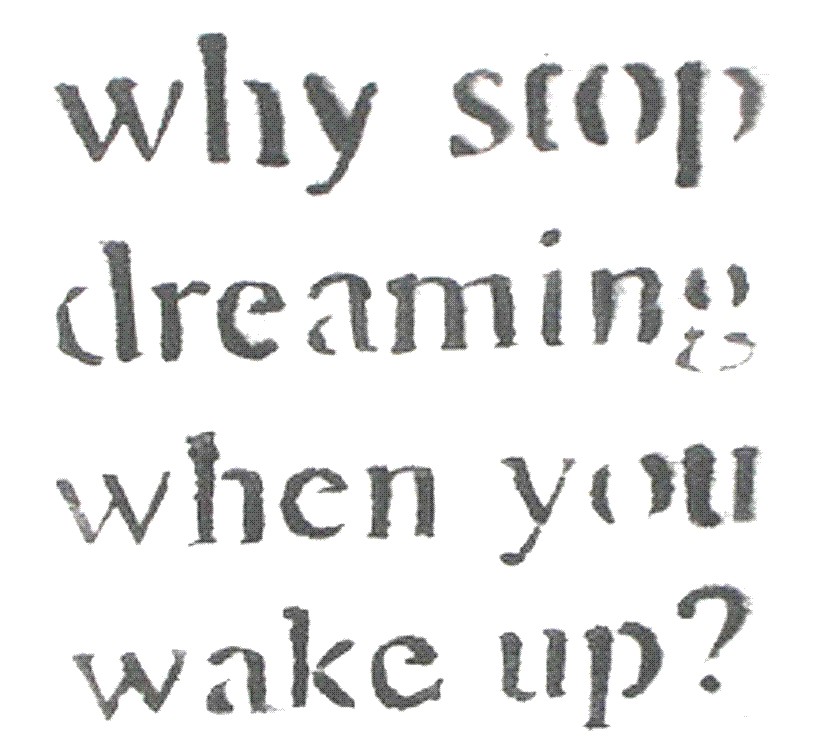 why stop
dreaming
when you
wake up?